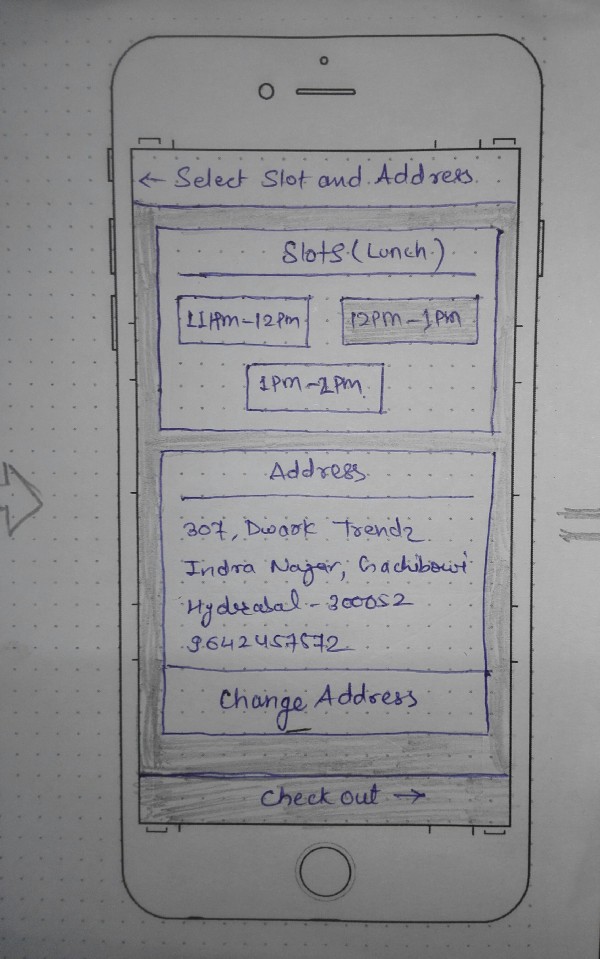 ← Select Slot and Address
Slots (Lunch)
11AM-12PM 12PM-1PM
1PM-2PM
Address
307, Dwark Trendz
Indra Nagar, Gachibowi
Hyderabal - 300052
9642457572
Change Address
Check out →